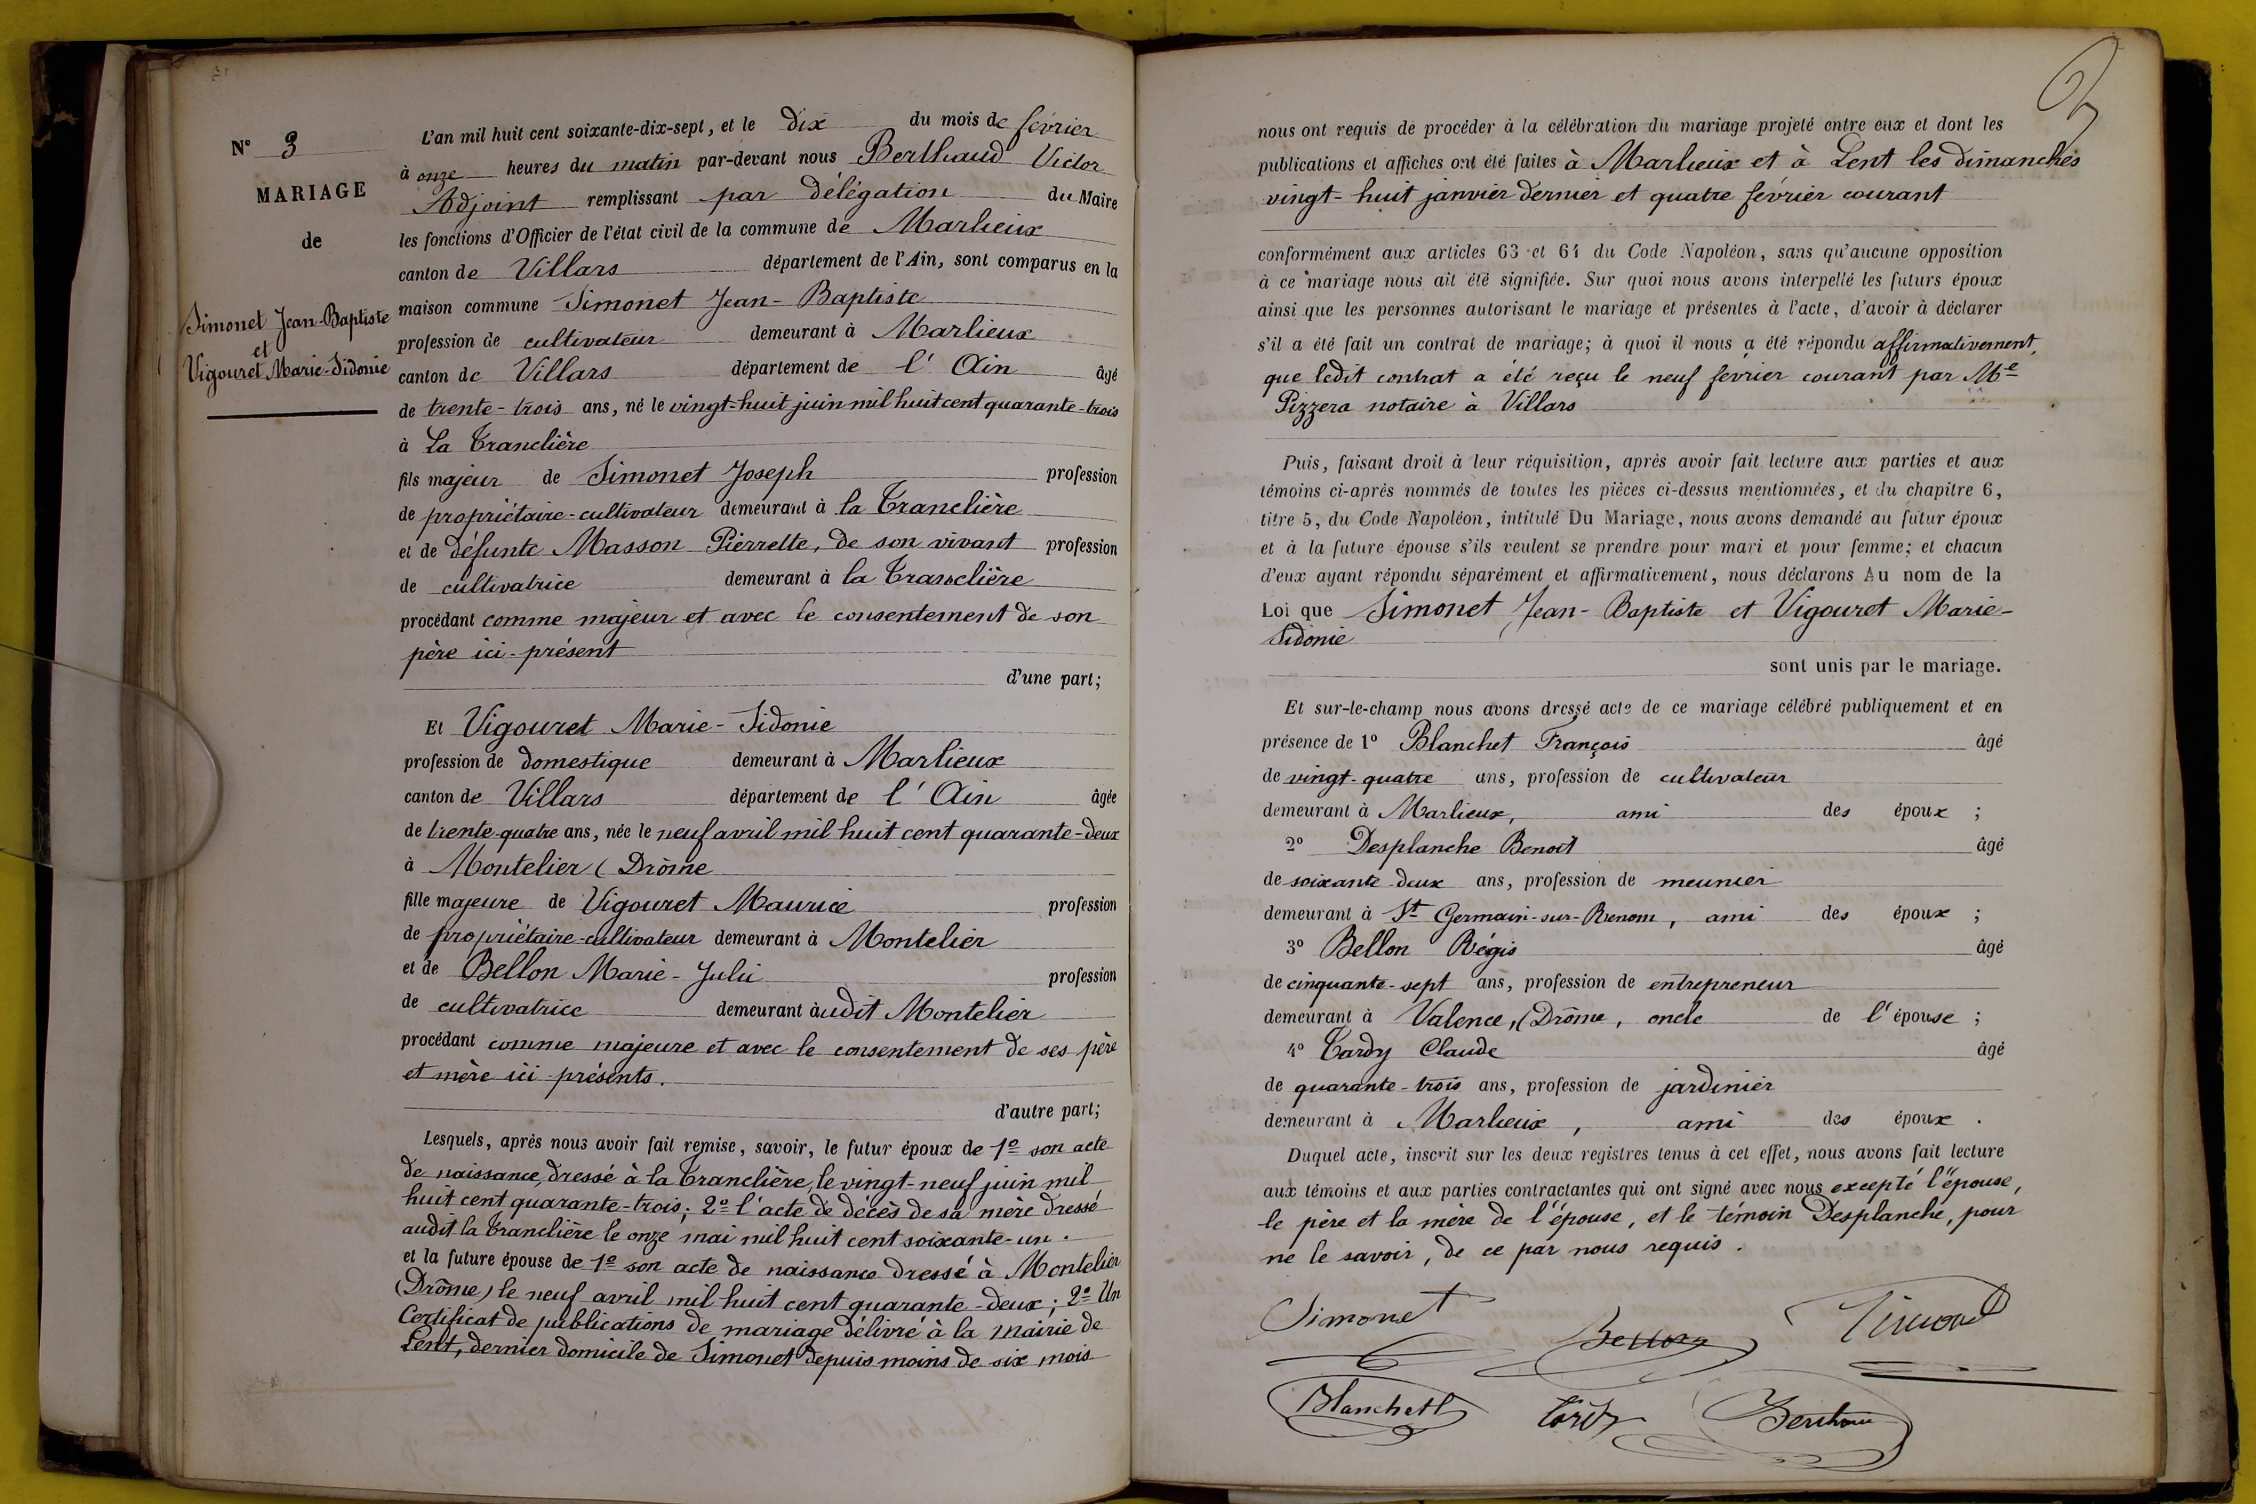 N° 3
MARIAGE
de
Simonet Jean-Baptiste
et
Vigouret Marie-Sidonie
L'an mil huit cent soixante-dix-sept, et le dix du mois de février
à onze heures du matin par-devant nous Berthaud Victor
Adjoint remplissant par délégation du Maire
les fonctions d'Officier de l'état civil de la commune de Marlieux
canton de Villars département de l'Ain, sont comparus en la
maison commune Simonet Jean-Baptiste
profession de cultivateur demeurant à Marlieux
canton de Villars département de l'Ain âgé
de trente-trois ans, né le vingt-huit juin mil huit cent quarante-trois
à La Tranclière
fils majeur de Simonet Joseph profession
de propriétaire-cultivateur demeurant à la Tranclière
et de défunte Masson Pierrette, de son vivant profession
de cultivatrice demeurant à la Tranclière
procédant comme majeur et avec le consentement de son
père ici-présent
d'une part;
Et Vigouret Marie-Sidonie
profession de domestique demeurant à Marlieux
canton de Villars département de l'Ain âgée
de trente-quatre ans, née le neuf avril mil huit cent quarante-deux
à Montelier (Drôme
fille majeure de Vigouret Maurice profession
de propriétaire-cultivateur demeurant à Montelier
et de Bellon Marie-Julie profession
de cultivatrice demeurant audit Montelier
procédant comme majeure et avec le consentement de ses père
et mère ici présents.
d'autre part;
Lesquels, après nous avoir fait remise, savoir, le futur époux de 1º son acte
de naissance, dressé à la Tranclière, le vingt-neuf juin mil
huit cent quarante-trois; 2º l'acte de décès de sa mère dressé
audit la Tranclière le onze mai mil huit cent soixante-un.
et la future épouse de 1º son acte de naissance dressé à Montelier
(Drôme) le neuf avril mil huit cent quarante-deux; 2º Un
Certificat de publications de mariage délivré à la mairie de
Lent, dernier domicile de Simonet depuis moins de six mois
nous ont requis de procéder à la célébration du mariage projeté entre eux et dont les
publications et affiches ont été faites à Marlieux et à Lent les dimanches
vingt-huit janvier dernier et quatre février courant
conformément aux articles 63 et 64 du Code Napoléon, sans qu'aucune opposition
à ce mariage nous ait été signifiée. Sur quoi nous avons interpellé les futurs époux
ainsi que les personnes autorisant le mariage et présentes à l'acte, d'avoir à déclarer
s'il a été fait un contrat de mariage; à quoi il nous a été répondu affirmativement,
que ledit contrat a été reçu le neuf février courant par Me
Pizzera notaire à Villars
Puis, faisant droit à leur réquisition, après avoir fait lecture aux parties et aux
témoins ci-après nommés de toutes les pièces ci-dessus mentionnées, et du chapitre 6,
titre 5, du Code Napoléon, intitulé Du Mariage, nous avons demandé au futur époux
et à la future épouse s'ils veulent se prendre pour mari et pour femme; et chacun
d'eux ayant répondu séparément et affirmativement, nous déclarons Au nom de la
Loi que Simonet Jean-Baptiste et Vigouret Marie-
Sidonie
sont unis par le mariage.
Et sur-le-champ nous avons dressé acte de ce mariage célébré publiquement et en
présence de 1º Blanchet François âgé
de vingt-quatre ans, profession de cultivateur
demeurant à Marlieux, ami des époux ;
2º Desplanche Benoit âgé
de soixante-deux ans, profession de meunier
demeurant à St Germain-sur-Renom, ami des époux ;
3º Bellon Régis âgé
de cinquante-sept ans, profession de entrepreneur
demeurant à Valence, (Drôme, oncle de l'épouse ;
4º Tardy Claude âgé
de quarante-trois ans, profession de jardinier
demeurant à Marlieux, ami des époux .
Duquel acte, inscrit sur les deux registres tenus à cet effet, nous avons fait lecture
aux témoins et aux parties contractantes qui ont signé avec nous excepté l'épouse,
le père et la mère de l'épouse, et le témoin Desplanche, pour
ne le savoir, de ce par nous requis.
Simonet Bellon Simonet
Blanchet Tardy Berthaud